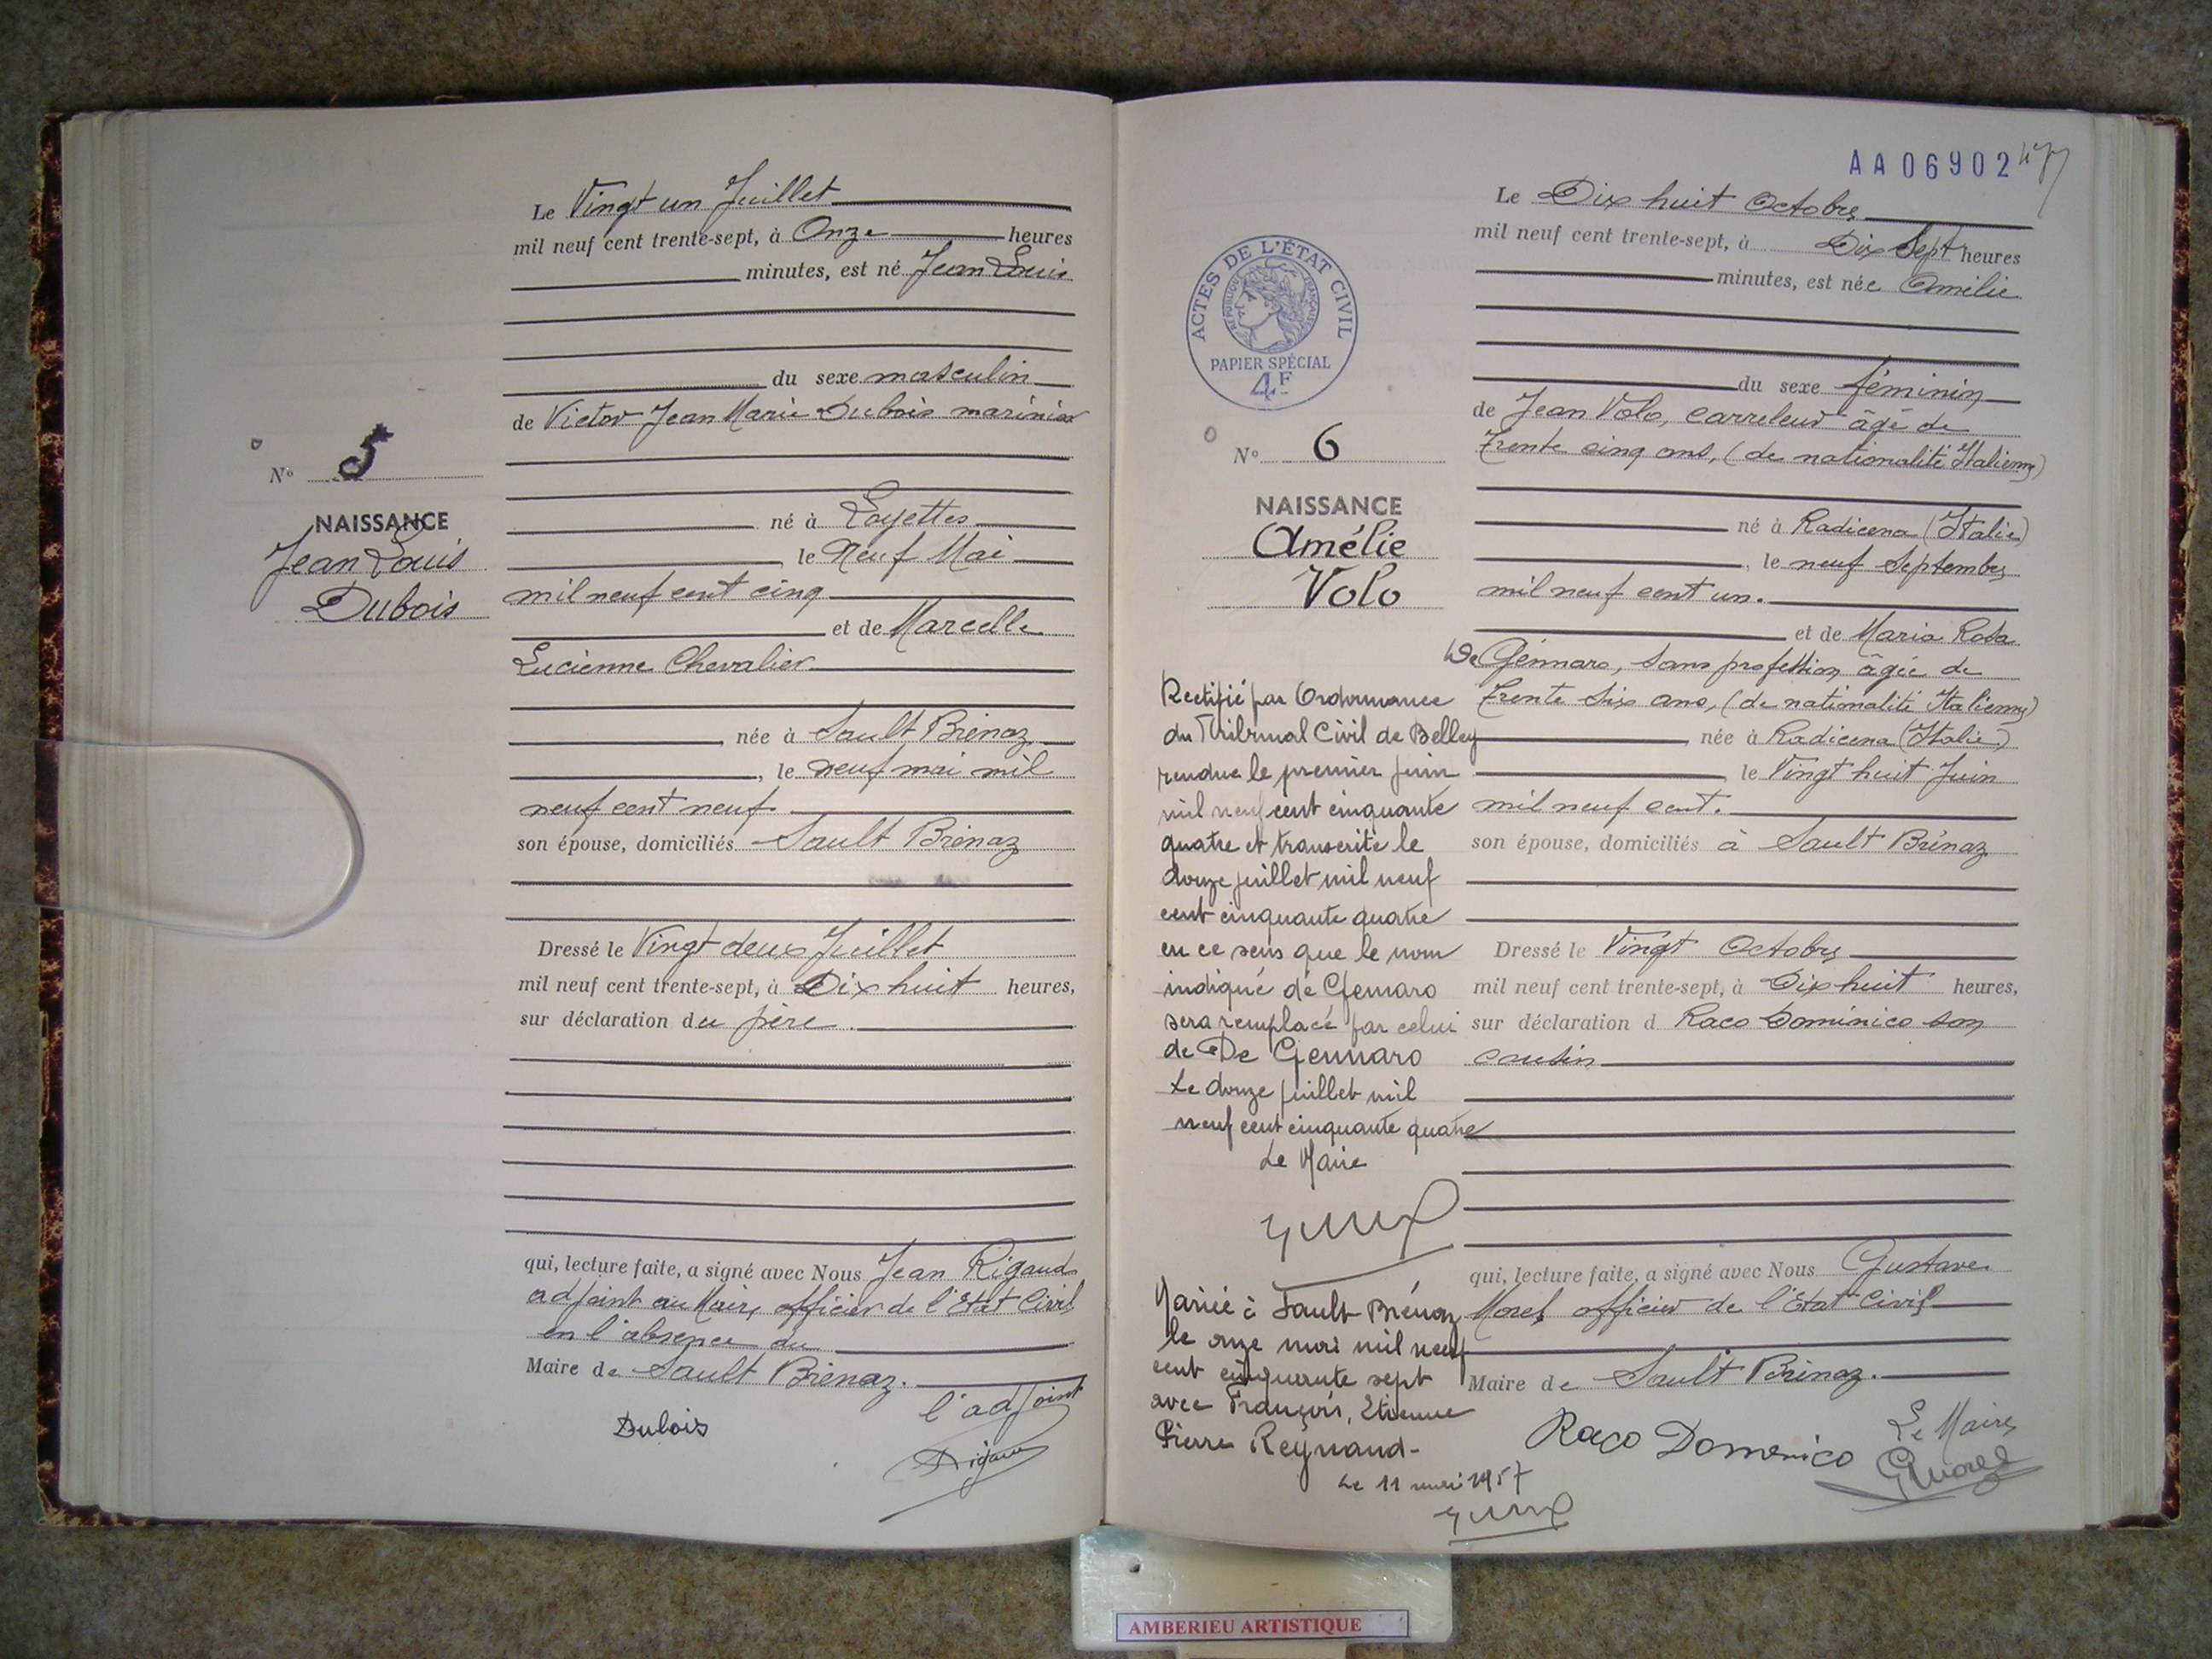 Le Vingt un Juillet
mil neuf cent trente-sept, à Onze heures
minutes, est né Jean Louis
du sexe masculin
de Victor Jean Marie Dubois marinier
N° 5
né à Loyettes
NAISSANCE
Jean Louis
Dubois
le Neuf Mai
mil neuf cent cinq
et de Marcelle
Lucienne Chevalier
née à Sault Brénaz
, le neuf mai mil
neuf cent neuf
son épouse, domiciliés Sault Brénaz
Dressé le Vingt deux Juillet
mil neuf cent trente-sept, à Dix huit heures,
sur déclaration du père.
qui, lecture faite, a signé avec Nous Jean Rigaud
adjoint au Maire, officier de l'Etat Civil
en l'absence du
Maire de Sault Brénaz.
l'adjoint
Dubois
Rigaud
AA06902
47
Le Dix huit Octobre
mil neuf cent trente-sept, à Dix Sept heures
minutes, est née Amélie
ACTES DE L'ÉTAT CIVIL
RÉPUBLIQUE FRANÇAISE
PAPIER SPÉCIAL
4F
du sexe féminin
de Jean Volo, carreleur âgé de
trente cinq ans, (de nationalité Italienne)
N° 6
NAISSANCE
Amélie
Volo
né à Radicena (Italie)
, le neuf Septembre
mil neuf cent un.
et de Maria Rosa
De Génnaro, sans profession âgée de
trente six ans, (de nationalité Italienne)
née à Radicena (Italie)
le Vingt huit Juin
mil neuf cent.
son épouse, domiciliés à Sault Brénaz
Dressé le Vingt Octobre
mil neuf cent trente-sept, à Dix huit heures,
sur déclaration d Raco Dominico son
cousin
qui, lecture faite, a signé avec Nous Gustave
Morel officier de l'Etat Civil
Maire de Sault Brénaz.
Raco Domenico
Le Maire,
GMorel
Rectifié par Ordonnance
du Tribunal Civil de Belley
rendue le premier juin
mil neuf cent cinquante
quatre et transcrite le
douze juillet mil neuf
cent cinquante quatre
en ce sens que le nom
indiqué de Gennaro
sera remplacé par celui
de De Gennaro
Le douze juillet mil
neuf cent cinquante quatre
Le Maire
Mariée à Sault-Brénaz
le onze mai mil neuf
cent cinquante sept
avec François, Etienne
Pierre Reynaud-
Le 11 mai 1957
AMBERIEU ARTISTIQUE